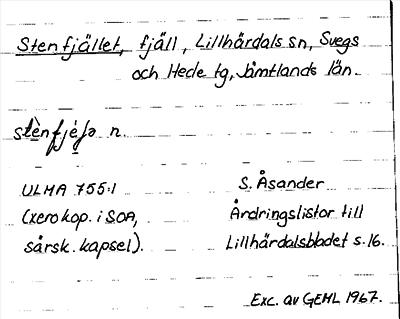 Stenfjället, fjäll, Lillhärdals sn, Svegs
och Hede tg, Jämtlands län.
n.
ULMA 755:1
(xerokop. i SOA,
särsk. kapsel).
S. Åsander
Ändringslistor till
Lillhärdalsbladet s. 16.
Exc. av GEML 1967.